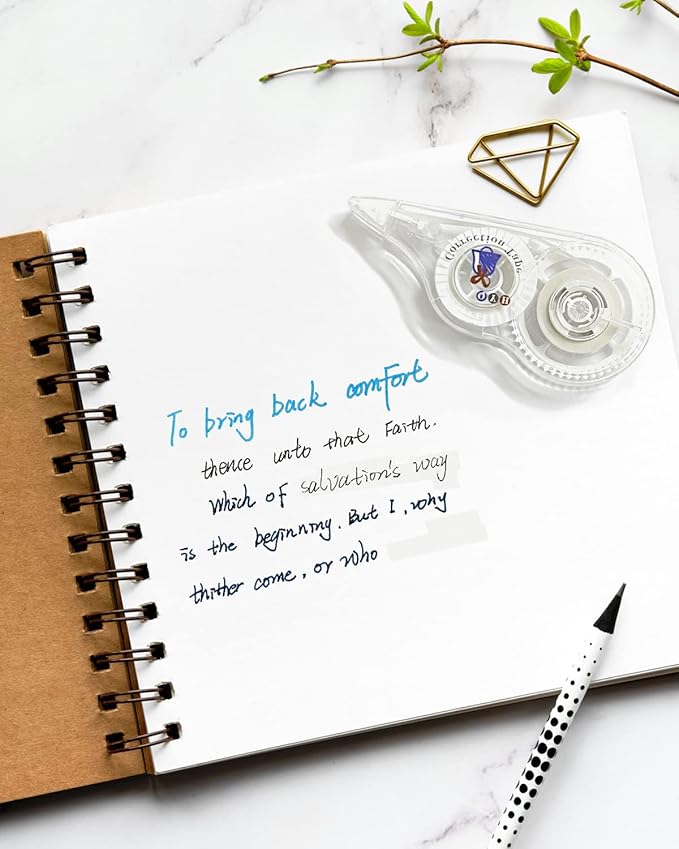 Correction Tape
To bring back comfort
thence unto that Faith.
which of salvation's way
is the beginning. But I, why
thither come, or who